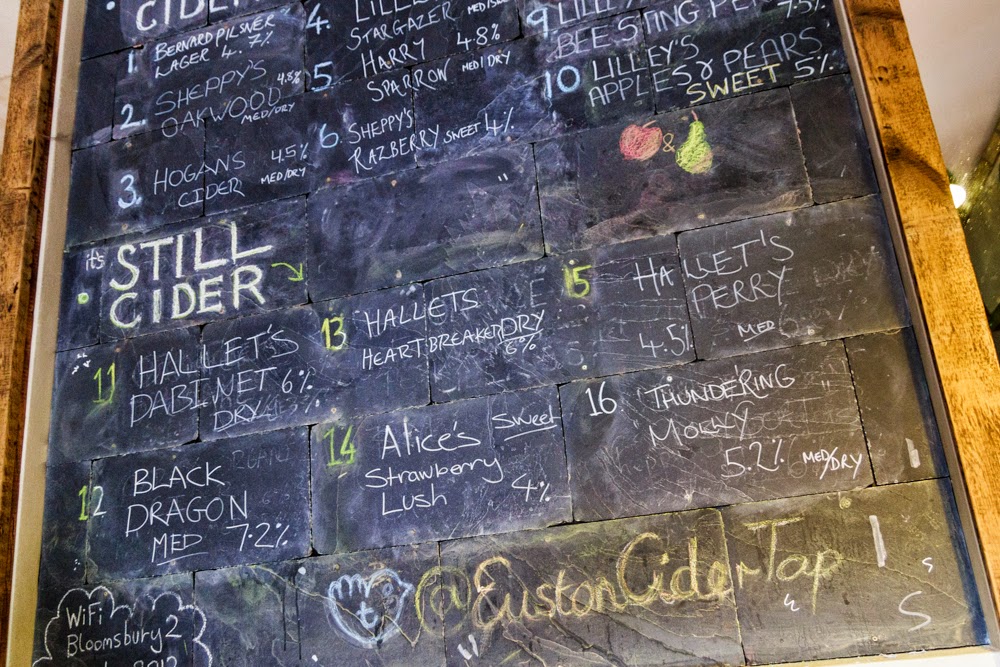 CIDER
1. BERNARD PILSNER
LAGER 4.7%
2. SHEPPY'S 4.8%
OAKWOOD MED/DRY
3. HOGANS 4.5%
CIDER MED/DRY
4.
STARGAZER
5. HARRY 4.8%
SPARROW MED/DRY
6. SHEPPY'S
RAZBERRY SWEET 4%
9. LILLEY'S
BEE STING 7.5%
10 LILLEY'S
APPLES & PEARS
SWEET 5%
&
it's STILL
CIDER
11 HALLET'S
DABINET 6%
DRY
12 BLACK
DRAGON
MED 7.2%
13 HALLETS
HEARTBREAKER DRY
6%
14 Alice's Sweet
Strawberry
Lush 4%
15 HALLET'S
PERRY
4.5% MED
16 THUNDERING
MOLLY
5.2% MED/DRY
@EustonCiderTap
WiFi
Bloomsbury2